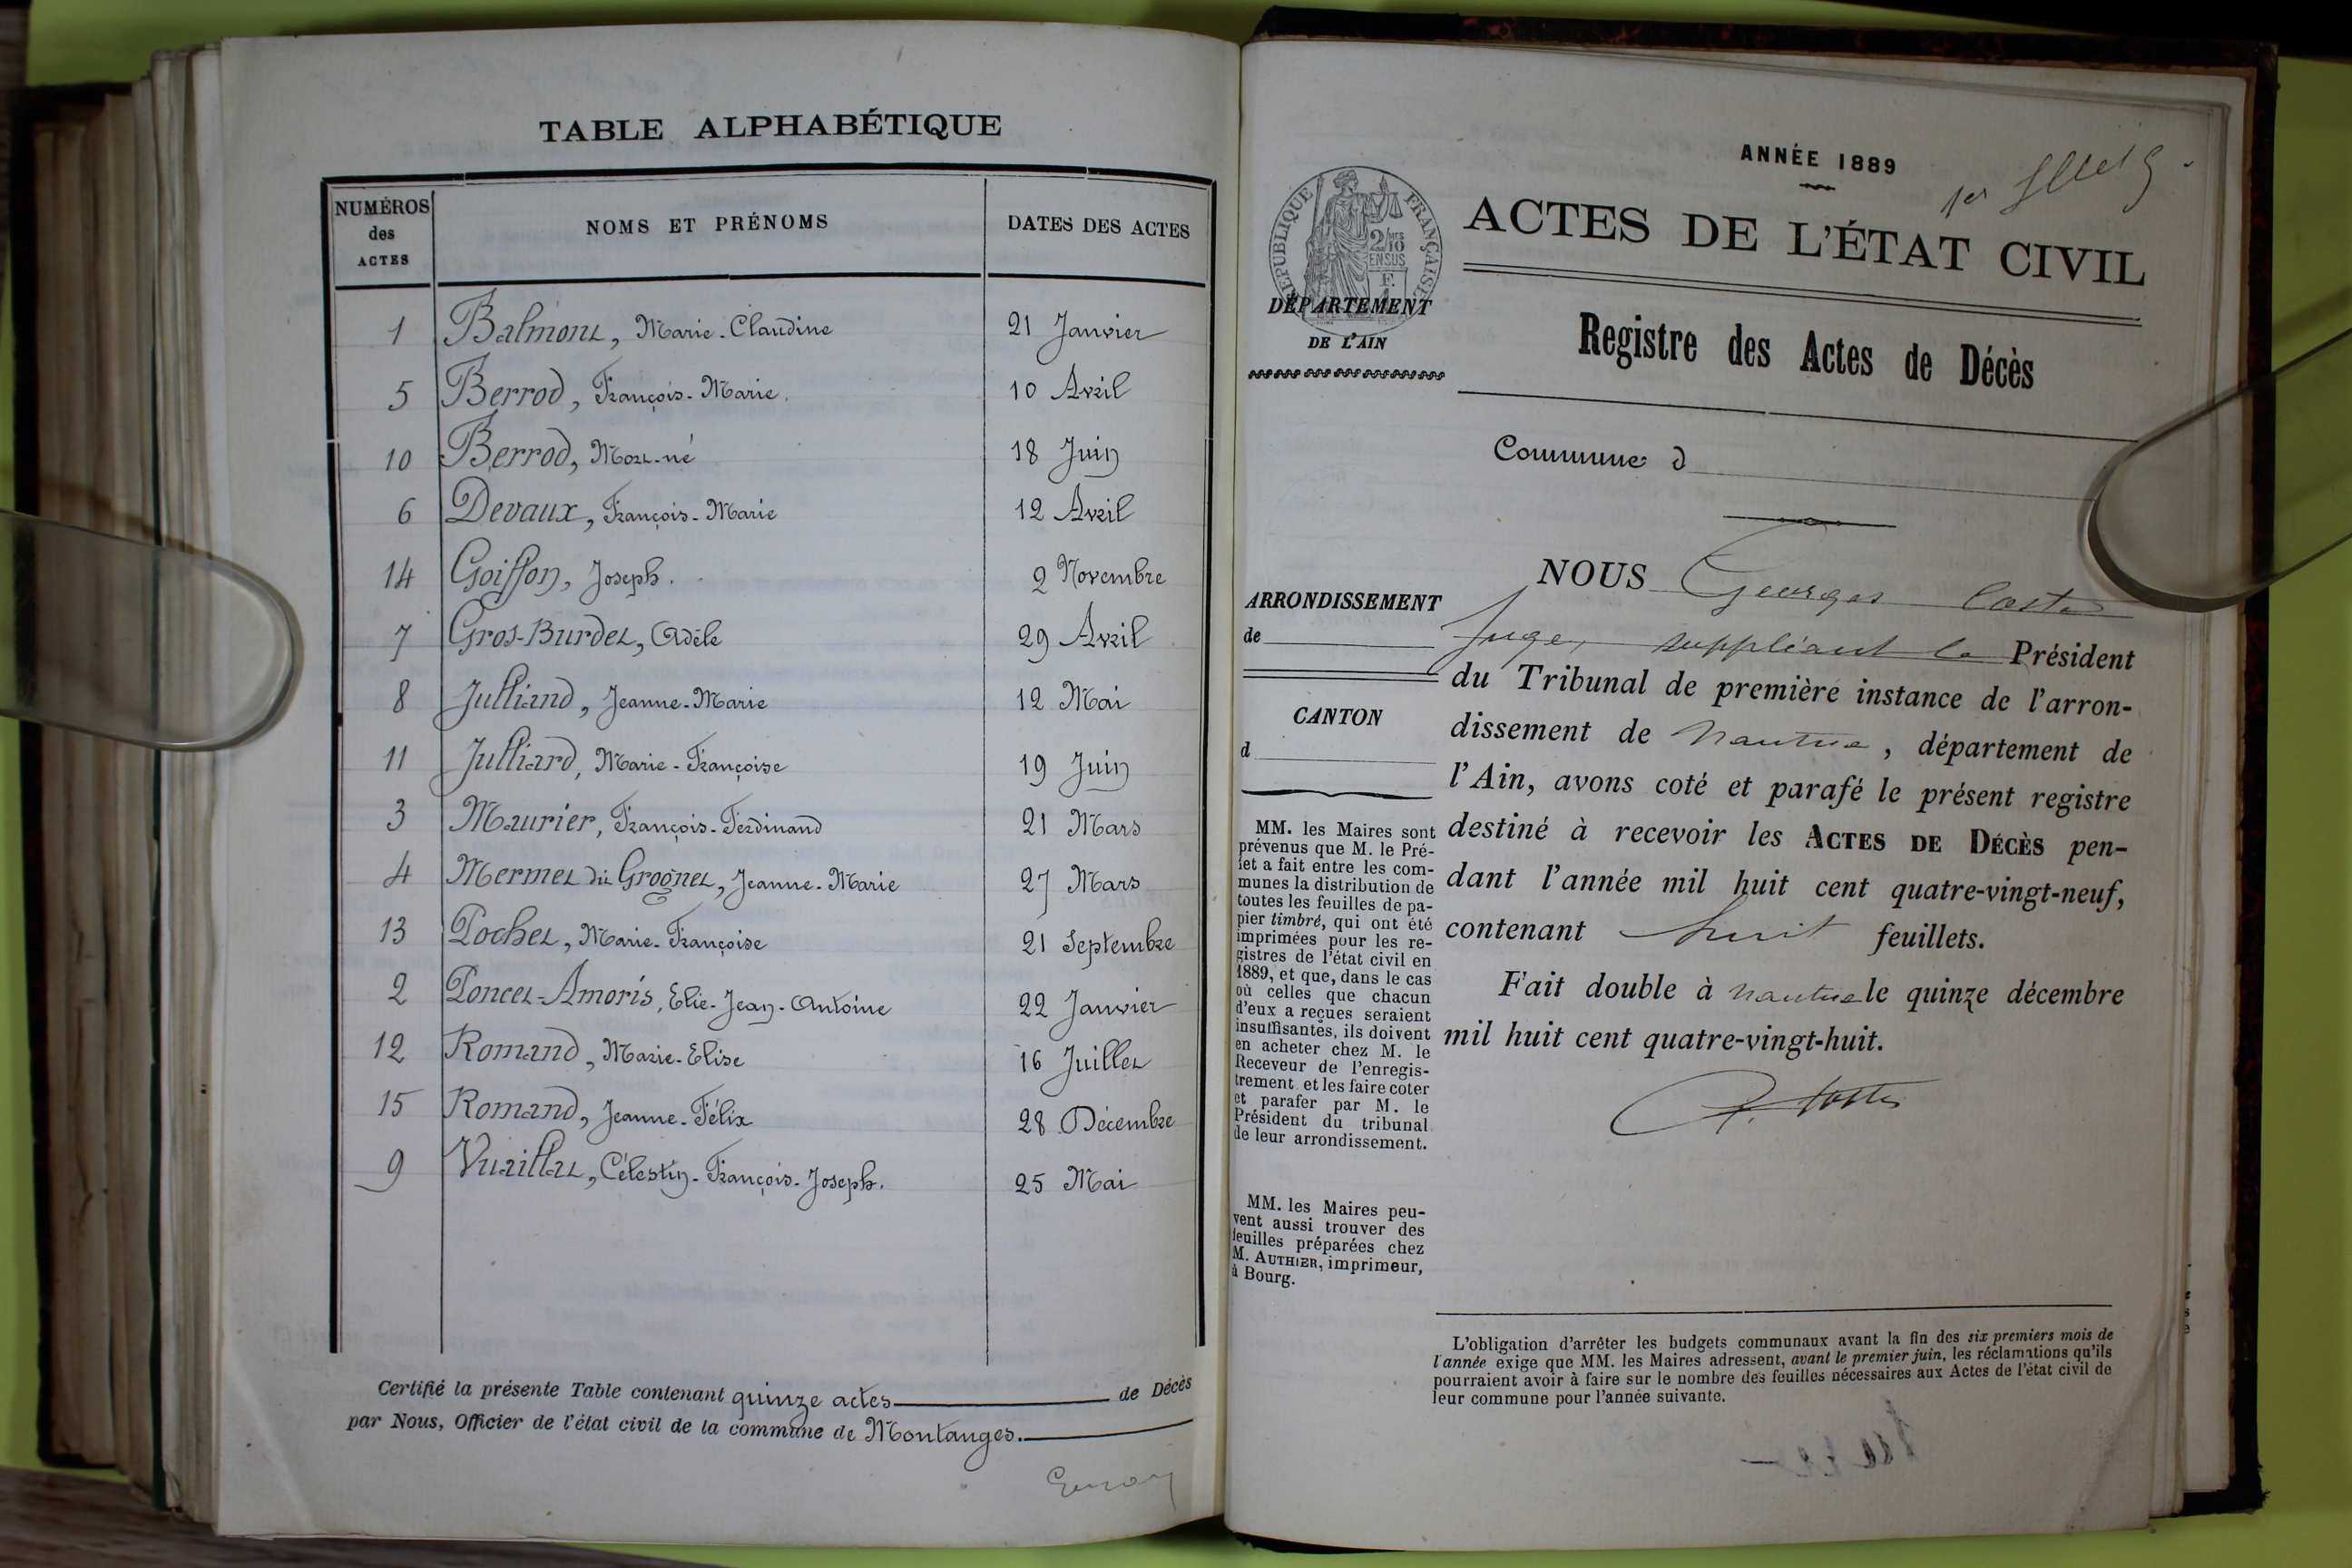 TABLE ALPHABÉTIQUE
NUMÉROS des ACTES NOMS ET PRÉNOMS DATES DES ACTES
1 Balmont, Marie-Claudine 21 Janvier
5 Berrod, François-Marie. 10 Avril
10 Berrod, Mort-né 18 Juin
6 Devaux, François-Marie 12 Avril
14 Goiffon, Joseph. 2 Novembre
7 Gros-Burdet, Adèle 29 Avril
8 Julliand, Jeanne-Marie 12 Mai
11 Julliard, Marie-Françoise 19 Juin
3 Maurier, François-Ferdinand 21 Mars
4 Mermet dit Grognet, Jeanne-Marie 27 Mars
13 Pochet, Marie-Françoise 21 Septembre
2 Poncet-Amoris, Elie-Jean-Antoine 22 Janvier
12 Romand, Marie-Elise 16 Juillet
15 Romand, Jeanne-Félix 28 Décembre
9 Vuaillat, Célestin-François-Joseph. 25 Mai
Certifié la présente Table contenant quinze actes de Décès
par Nous, Officier de l'état civil de la commune de Montanges.
ANNÉE 1889
1er
ACTES DE L'ÉTAT CIVIL
RÉPUBLIQUE FRANÇAISE
2/10 MES
EN SUS
F.
DÉPARTEMENT
DE L'AIN
Registre des Actes de Décès
Commune d
ARRONDISSEMENT
de
CANTON
d
NOUS Georges Coste
Juge, suppléant le Président
du Tribunal de première instance de l'arron-
dissement de Nantua, département de
l'Ain, avons coté et parafé le présent registre
destiné à recevoir les ACTES DE DÉCÈS pen-
dant l'année mil huit cent quatre-vingt-neuf,
contenant huit feuillets.
Fait double à Nantua le quinze décembre
mil huit cent quatre-vingt-huit.
G. Coste
MM. les Maires sont
prévenus que M. le Pré-
fet a fait entre les com-
munes la distribution de
toutes les feuilles de pa-
pier timbré, qui ont été
imprimées pour les re-
gistres de l'état civil en
1889, et que, dans le cas
où celles que chacun
d'eux a reçues seraient
insuffisantes, ils doivent
en acheter chez M. le
Receveur de l'enregis-
trement et les faire coter
et parafer par M. le
Président du tribunal
de leur arrondissement.
MM. les Maires peu-
vent aussi trouver des
feuilles préparées chez
M. AUTHIER, imprimeur,
à Bourg.
L'obligation d'arrêter les budgets communaux avant la fin des six premiers mois de
l'année exige que MM. les Maires adressent, avant le premier juin, les réclamations qu'ils
pourraient avoir à faire sur le nombre des feuilles nécessaires aux Actes de l'état civil de
leur commune pour l'année suivante.